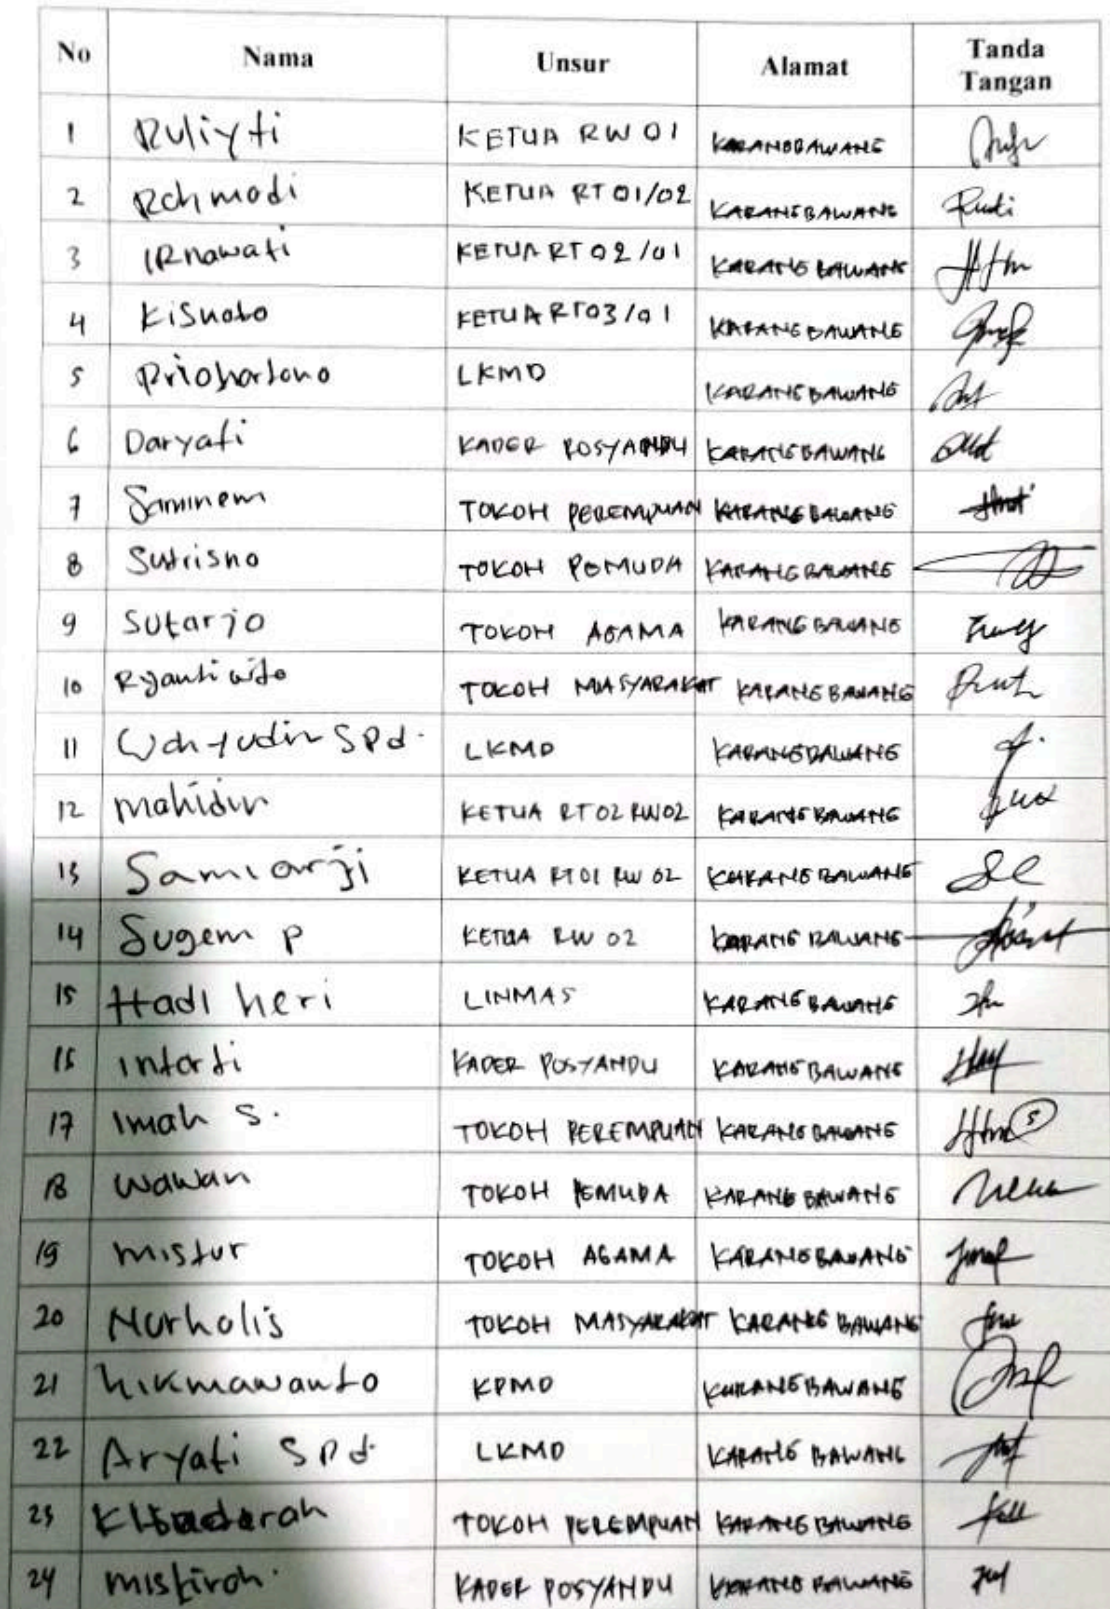 No Nama Unsur Alamat Tanda Tangan
1 Ruliyti KETUA RW 01 KARANGBAWANG
2 Rohmadi KETUA RT 01/02 KARANGBAWANG Rudi
3 IRnawati KETUA RT 02/01 KARANG BAWANG
4 Kisnoto KETUA RT03/01 KARANG BAWANG
5 Priohartono LKMD KARANG BAWANG
6 Daryati KADER POSYANDU KARANG BAWANG
7 Saminem TOKOH PEREMPUAN KARANG BAWANG
8 Sutrisno TOKOH PEMUDA KARANG BAWANG
9 Sutarjo TOKOH AGAMA KARANG BAWANG
10 TOKOH MASYARAKAT KARANG BAWANG
11 Wahyudin SPd. LKMD KARANG BAWANG
12 mahidin KETUA RT 02 RW02 KARANG BAWANG
13 Samiarji KETUA RT01 RW 02 KARANG BAWANG
14 Sugem p KETUA RW 02 KARANG BAWANG
15 Hadi heri LINMAS KARANG BAWANG
15 intarti KADER POSYANDU KARANG BAWANG
17 Imah S. TOKOH PEREMPUAN KARANG BAWANG
18 wawan TOKOH PEMUDA KARANG BAWANG
19 mistur TOKOH AGAMA KARANG BAWANG
20 Nurholis TOKOH MASYARAKAT KARANG BAWANG
21 hikmawanto KPMD KARANG BAWANG
22 Aryati SPd. LKMD KARANG BAWANG
23 TOKOH PEREMPUAN KARANG BAWANG
24 mistiroh. KADER POSYANDU KARANG BAWANG